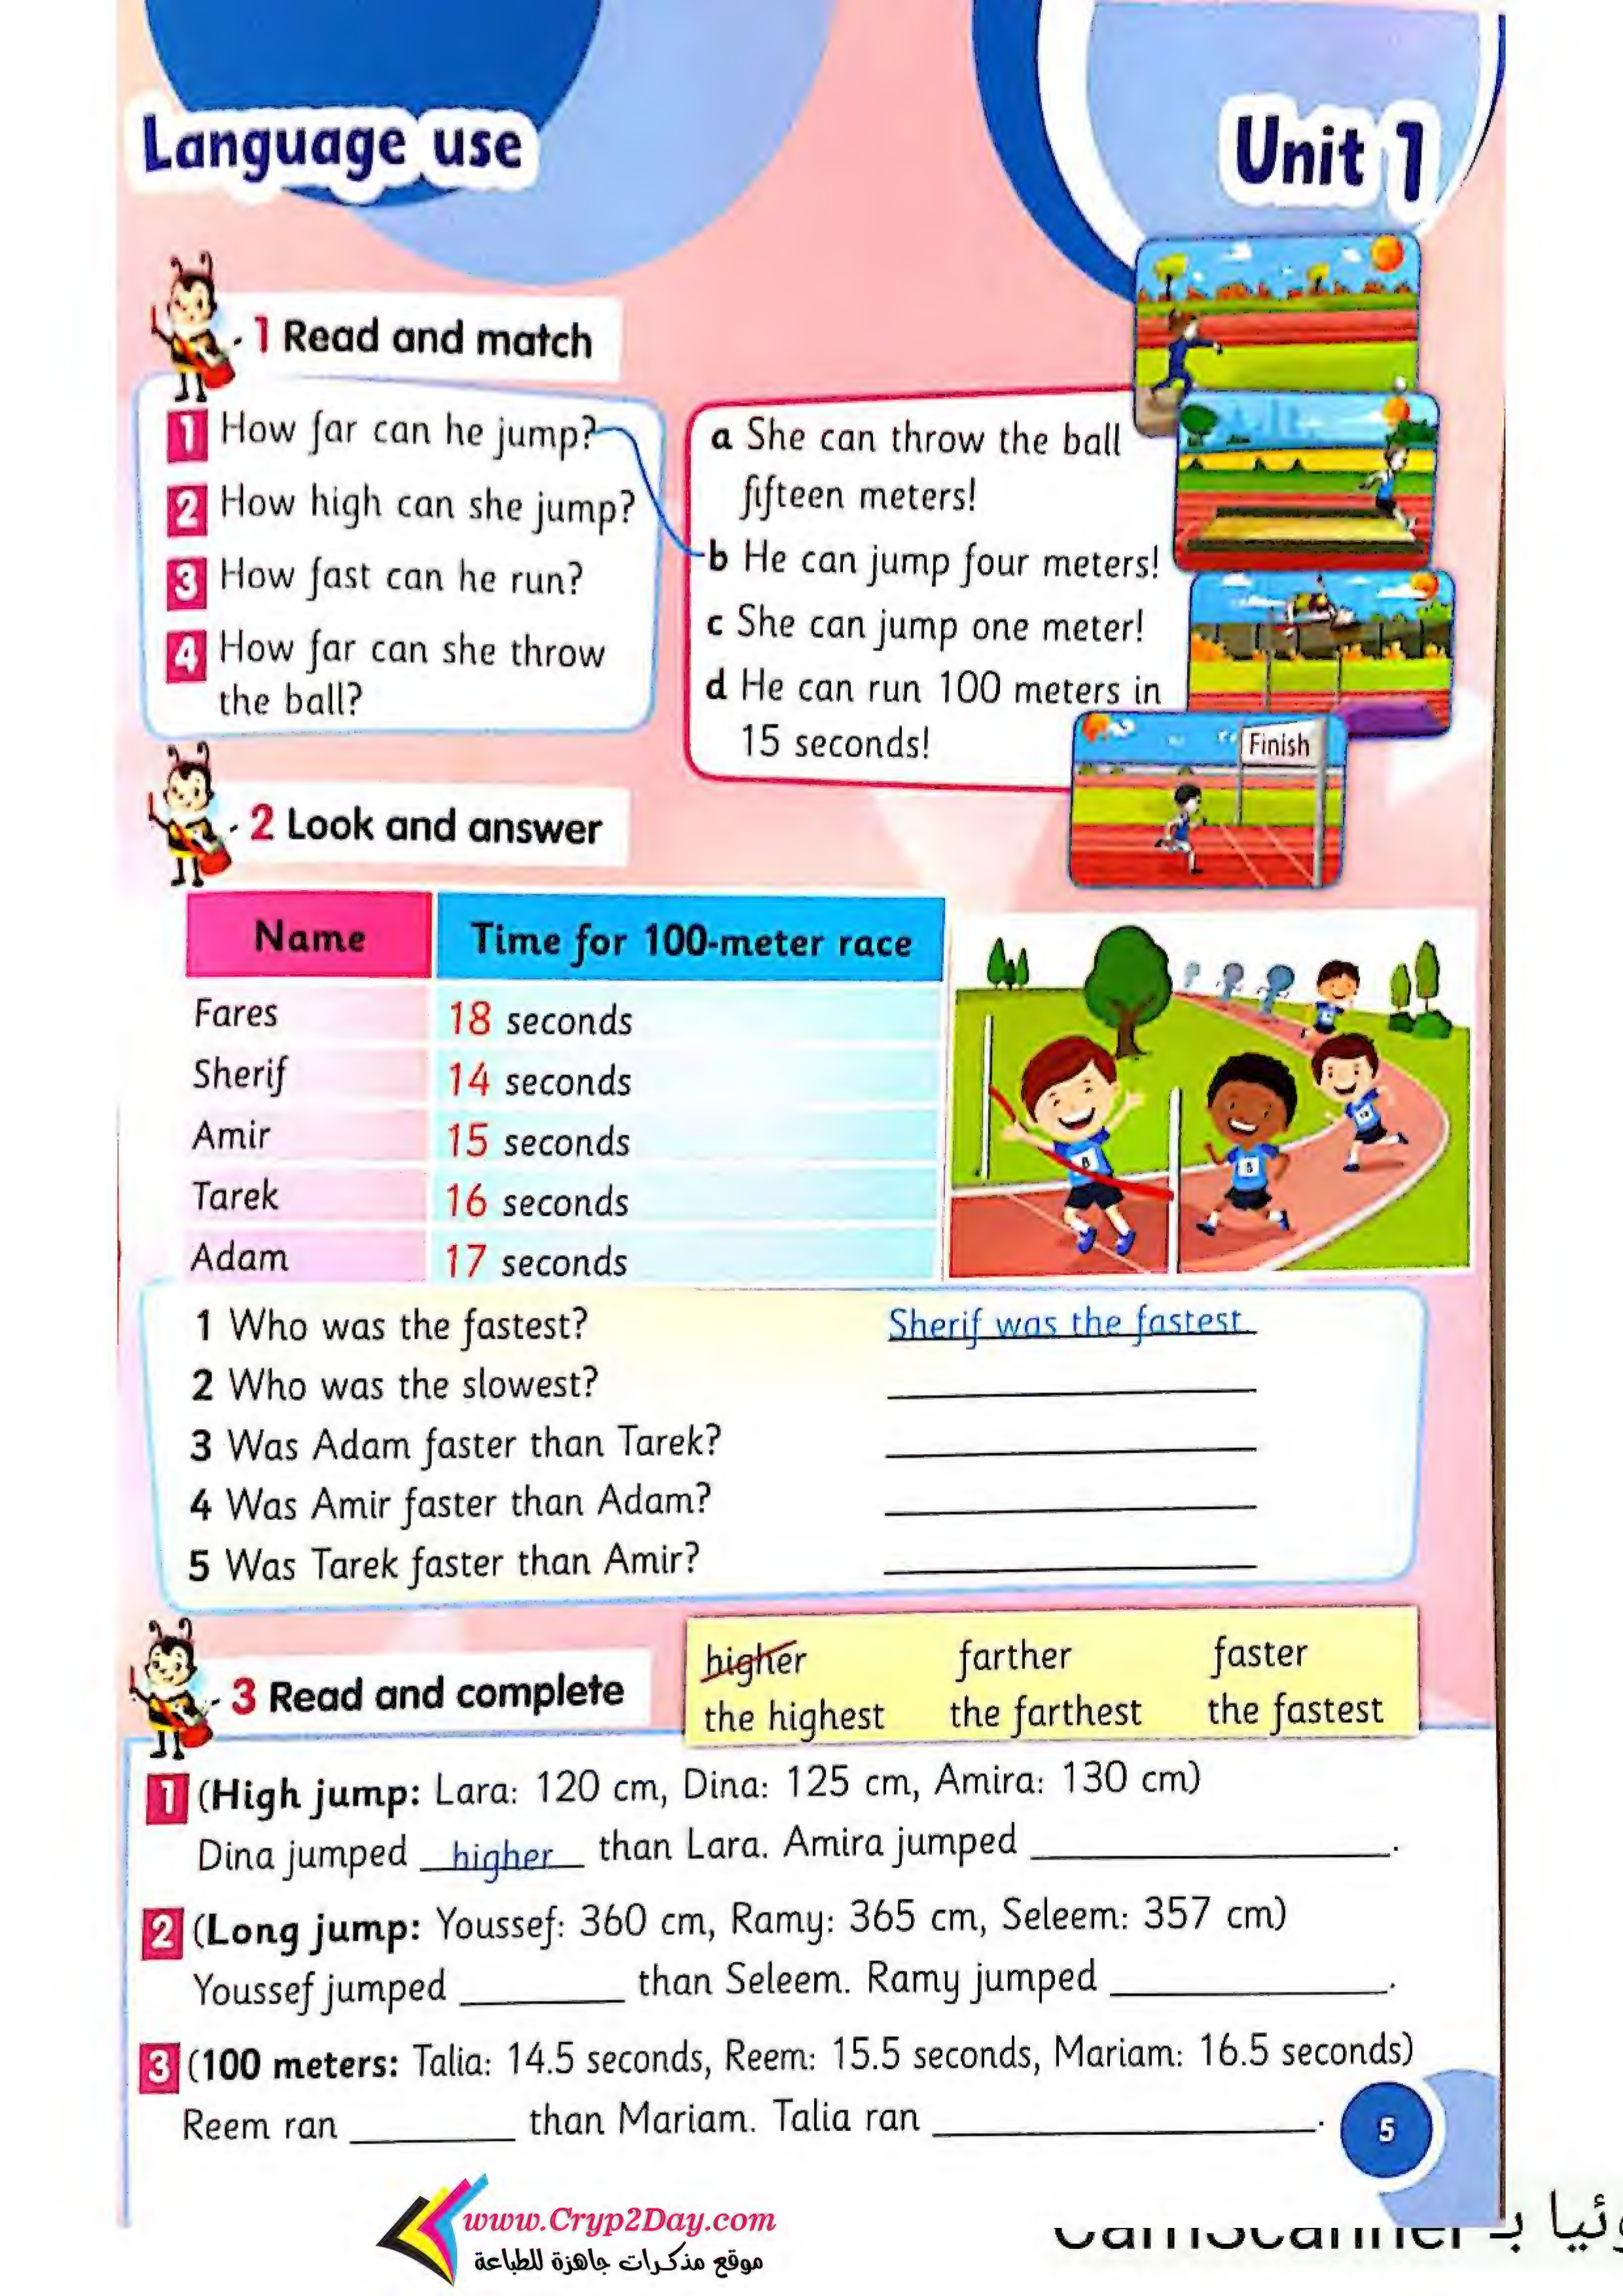 Language use
Unit 1
1 Read and match
1 How far can he jump?
2 How high can she jump?
3 How fast can he run?
4 How far can she throw
the ball?
a She can throw the ball
fifteen meters!
b He can jump four meters!
c She can jump one meter!
d He can run 100 meters in
15 seconds!
Finish
2 Look and answer
Name Time for 100-meter race
Fares 18 seconds
Sherif 14 seconds
Amir 15 seconds
Tarek 16 seconds
Adam 17 seconds
1 Who was the fastest? Sherif was the fastest.
2 Who was the slowest?
3 Was Adam faster than Tarek?
4 Was Amir faster than Adam?
5 Was Tarek faster than Amir?
3 Read and complete
higher farther faster
the highest the farthest the fastest
1 (High jump: Lara: 120 cm, Dina: 125 cm, Amira: 130 cm)
Dina jumped higher than Lara. Amira jumped ____.
2 (Long jump: Youssef: 360 cm, Ramy: 365 cm, Seleem: 357 cm)
Youssef jumped ____ than Seleem. Ramy jumped ____.
3 (100 meters: Talia: 14.5 seconds, Reem: 15.5 seconds, Mariam: 16.5 seconds)
Reem ran ____ than Mariam. Talia ran ____.
5
www.Cryp2Day.com
موقع مذكرات جاهزة للطباعة
CamScanner بـ